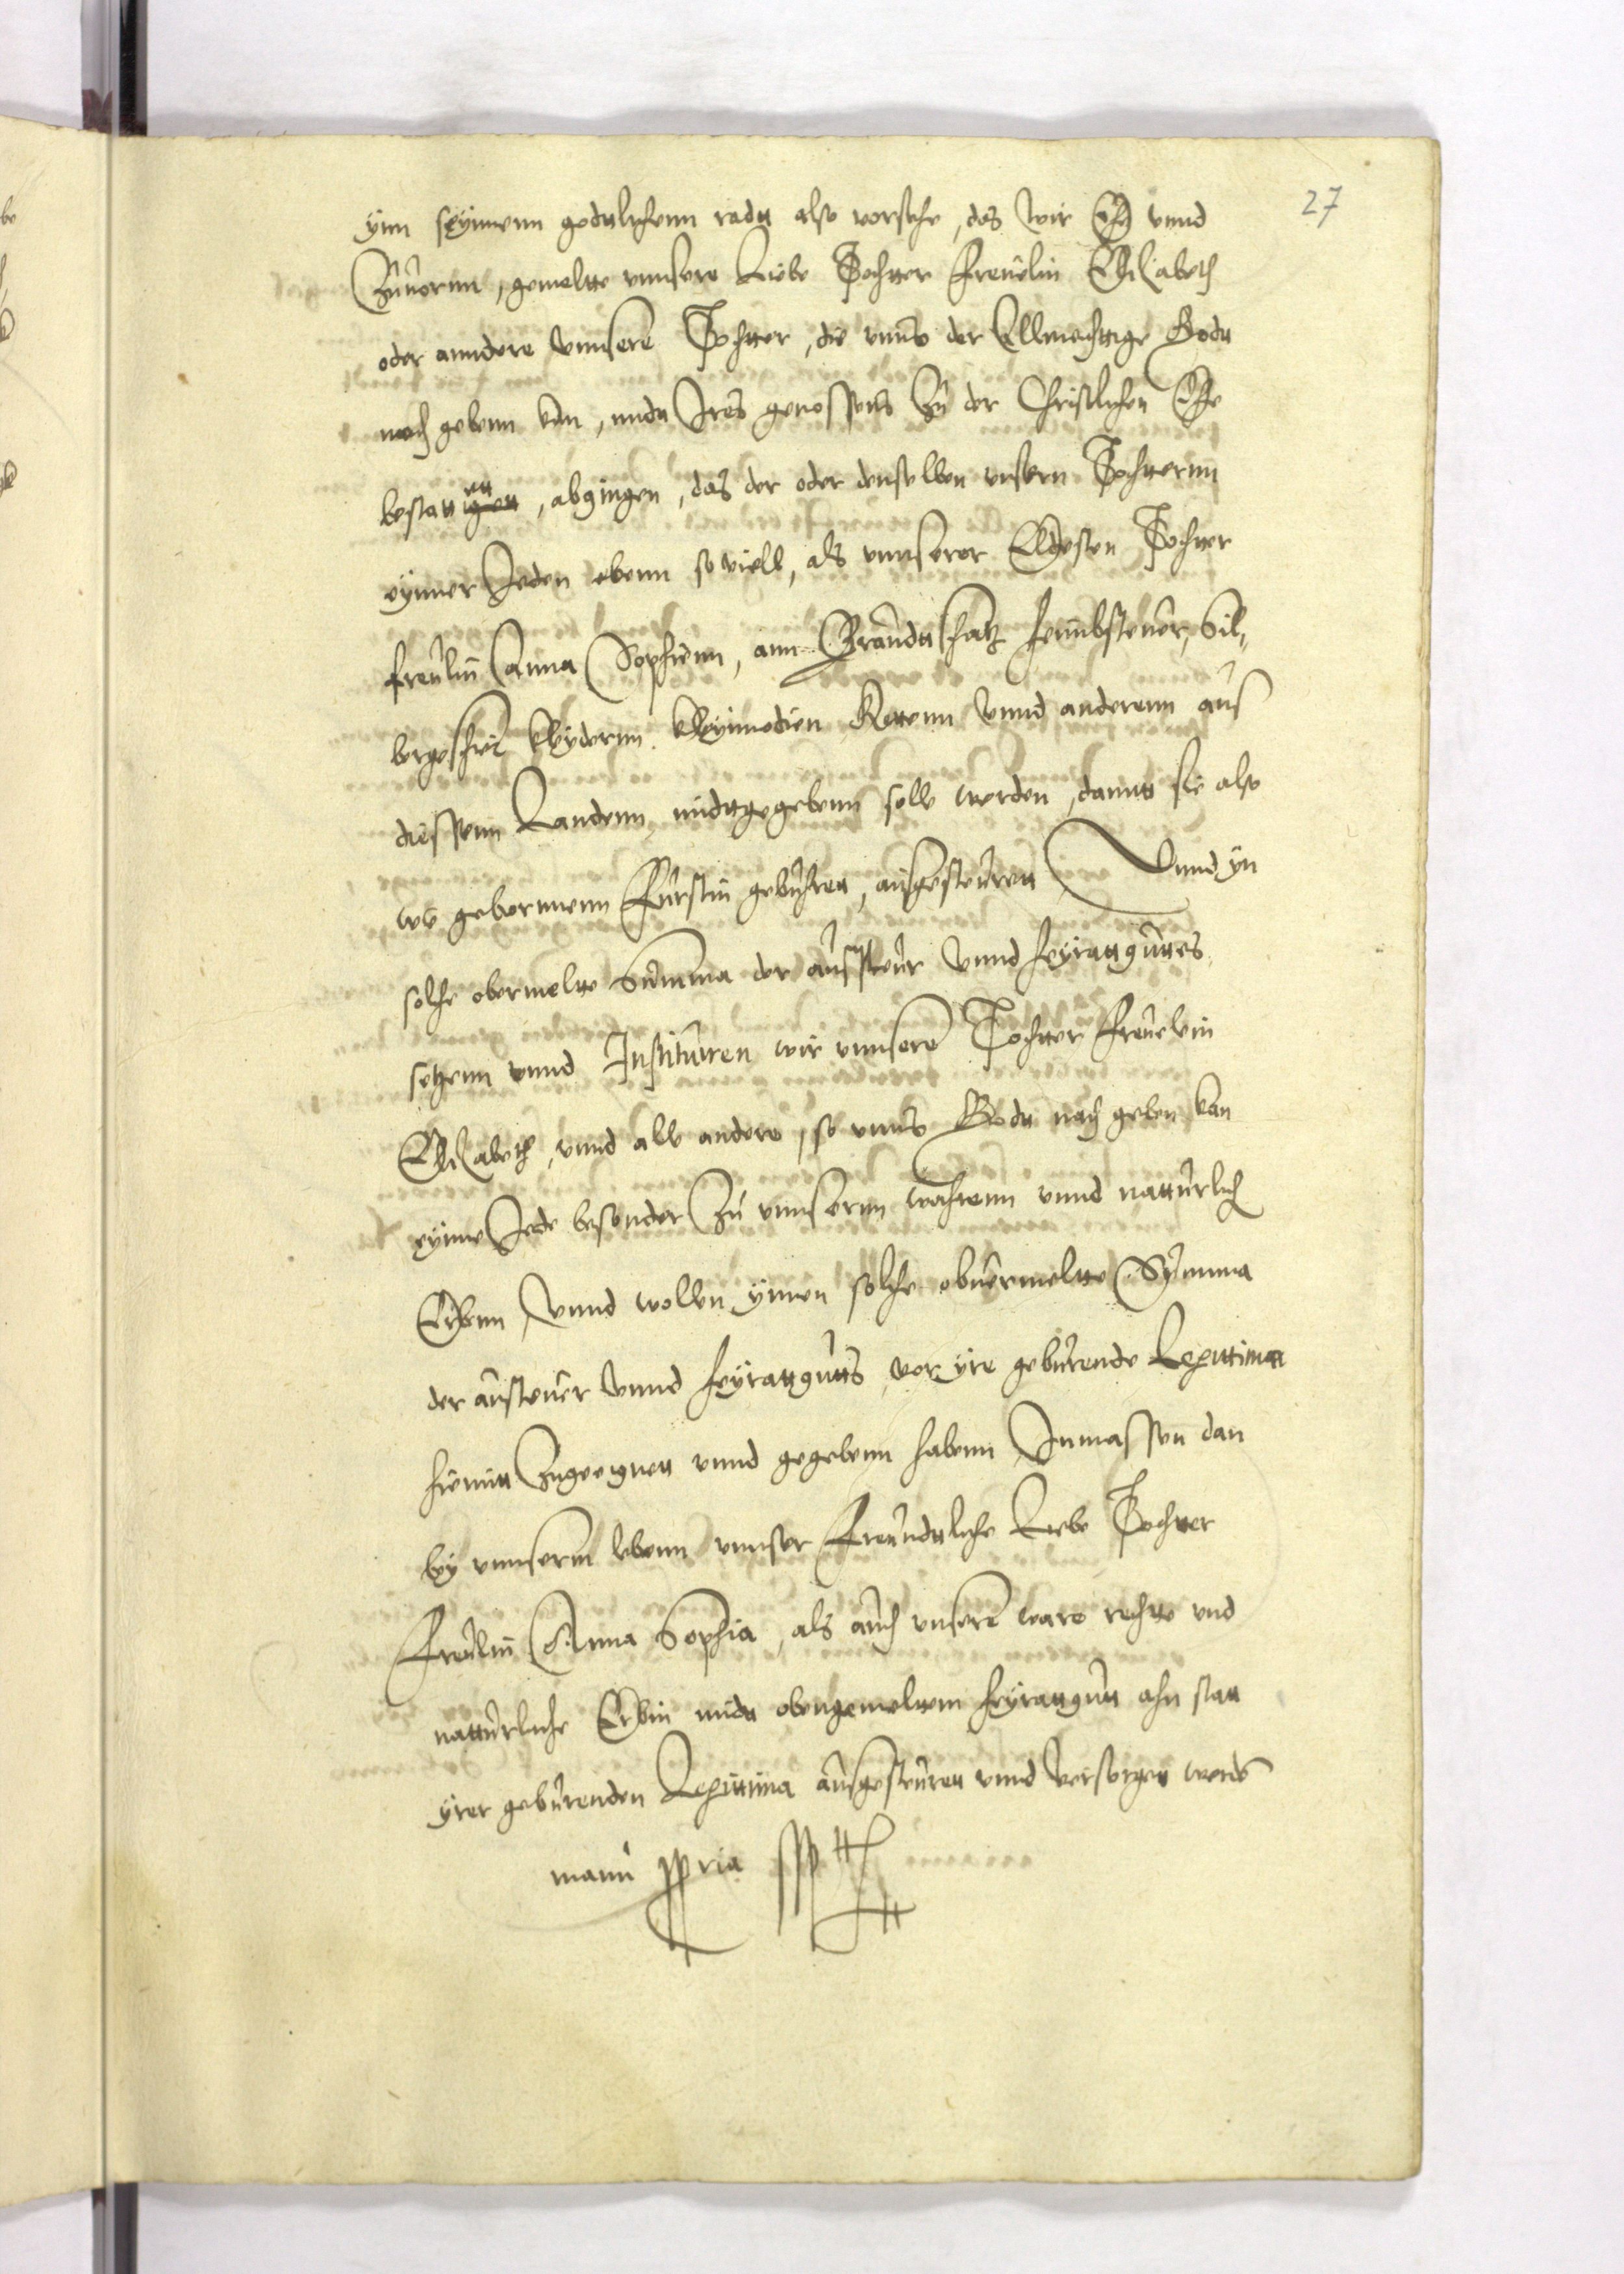 27
ynn seynnem godtlichenn radtt also vorsehe, das wir Ehe vnnd
Zuuornn, gemeltte vnnsere Liebe Tochtter Freuelin Elisabeth
oder anndere vnnsere Tochtter, die vnns der Allmechttige Godtt
noch gebenn kan, midtt Ires genossens Zu der Christlichen Ehe
bestattett, abgingen, das der oder denselben vnsern Tochternn
eynner Jeden ebenn so viell, als vnnserer Eldesten Tochtter
freulin Anna Sophienn, ann Brawdttschatz heimbsteuer, Sil,,
bergeschir kleydernn, kleynodien Kettenn vnnd anderenn aus
diessenn Landenn midttgegebenn soll werden, damitt sie also
wie gebornnenn Furstin geburtt, ausgesteurett Vnnd yn
solche obermeltte Summa der aussteur vnnd heyrattguttes
setzenn vnnd Instituiren wir vnnsere Tochtter Freuelin
Elisabeth, vnnd alle andere, so vnns Godtt nach geben kan
eynne Jede besonder Zu vnnsernn wahrenn vnnd natturlich
Erbenn, Vnnd wollen ynnen solche obuermeltte Summa
der austeuer vnnd heyrattgutts vor yre geburende Legittima
hiemitt Zugeeignett vnnd gegebenn habenn Inmassen dan
by vnnserm lebenn vnnser Freundttliche Liebe Tochtter
Freulin Anna Sophia, als auch vnsere ware rechtte vnd
natturliche Erbin midtt obengemeltem heyrattgutt ahn statt
yrer geburenden Legittima ausgesteurett vnnd versorgett werden
manu ppria sspt